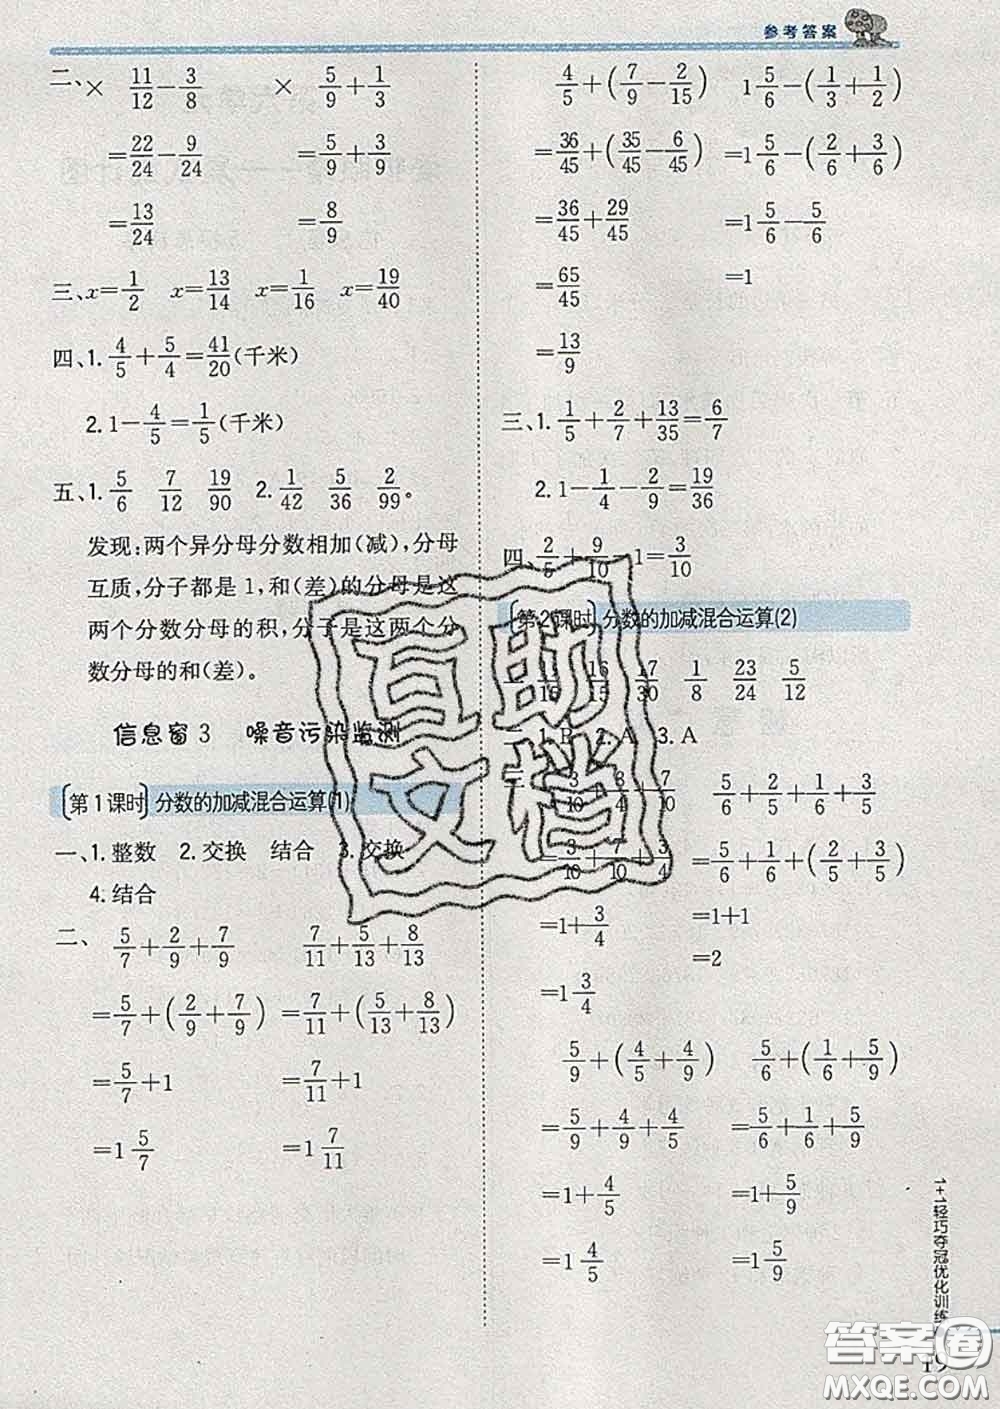 参考答案
二、× 11/12－3/8 × 5/9＋1/3
＝22/24－9/24 ＝5/9＋3/9
＝13/24 ＝8/9
三、x＝1/2 x＝13/14 x＝1/16 x＝19/40
四、1. 4/5＋5/4＝41/20(千米)
2. 1－4/5＝1/5(千米)
五、1. 5/6 7/12 19/90 2. 1/42 5/36 2/99。
发现:两个异分母分数相加(减),分母
互质,分子都是 1,和(差)的分母是这
两个分数分母的积,分子是这两个分
数分母的和(差)。
信息窗 3 噪音污染监测
第 1 课时 分数的加减混合运算(1)
一、1. 整数 2. 交换 结合 3. 交换
4. 结合
二、 5/7＋2/9＋7/9 7/11＋5/13＋8/13
＝5/7＋(2/9＋7/9) ＝7/11＋(5/13＋8/13)
＝5/7＋1 ＝7/11＋1
＝1 5/7 ＝1 7/11
4/5＋(7/9－2/15) 1 5/6－(1/3＋1/2)
＝36/45＋(35/45－6/45) ＝1 5/6－(2/6＋3/6)
＝36/45＋29/45 ＝1 5/6－5/6
＝65/45 ＝1
＝13/9
三、1. 1/5＋2/7＋13/35＝6/7
2. 1－1/4－2/9＝19/36
四、2/5＋9/10－1＝3/10
第 2 课时 分数的加减混合运算(2)
一、 16/15 17/30 1/8 23/24 5/12
二、1. B 2. A 3. A
三、 3/10＋3/4＋7/10 5/6＋2/5＋1/6＋3/5
＝3/10＋7/10＋3/4 ＝5/6＋1/6＋(2/5＋3/5)
＝1＋3/4 ＝1＋1
＝1 3/4 ＝2
5/9＋(4/5＋4/9) 5/6＋(1/6＋5/9)
＝5/9＋4/9＋4/5 ＝5/6＋1/6＋5/9
＝1＋4/5 ＝1＋5/9
＝1 4/5 ＝1 5/9
1+1轻巧夺冠优化训练
19
互助
文档
答案圈
MXQE.COM